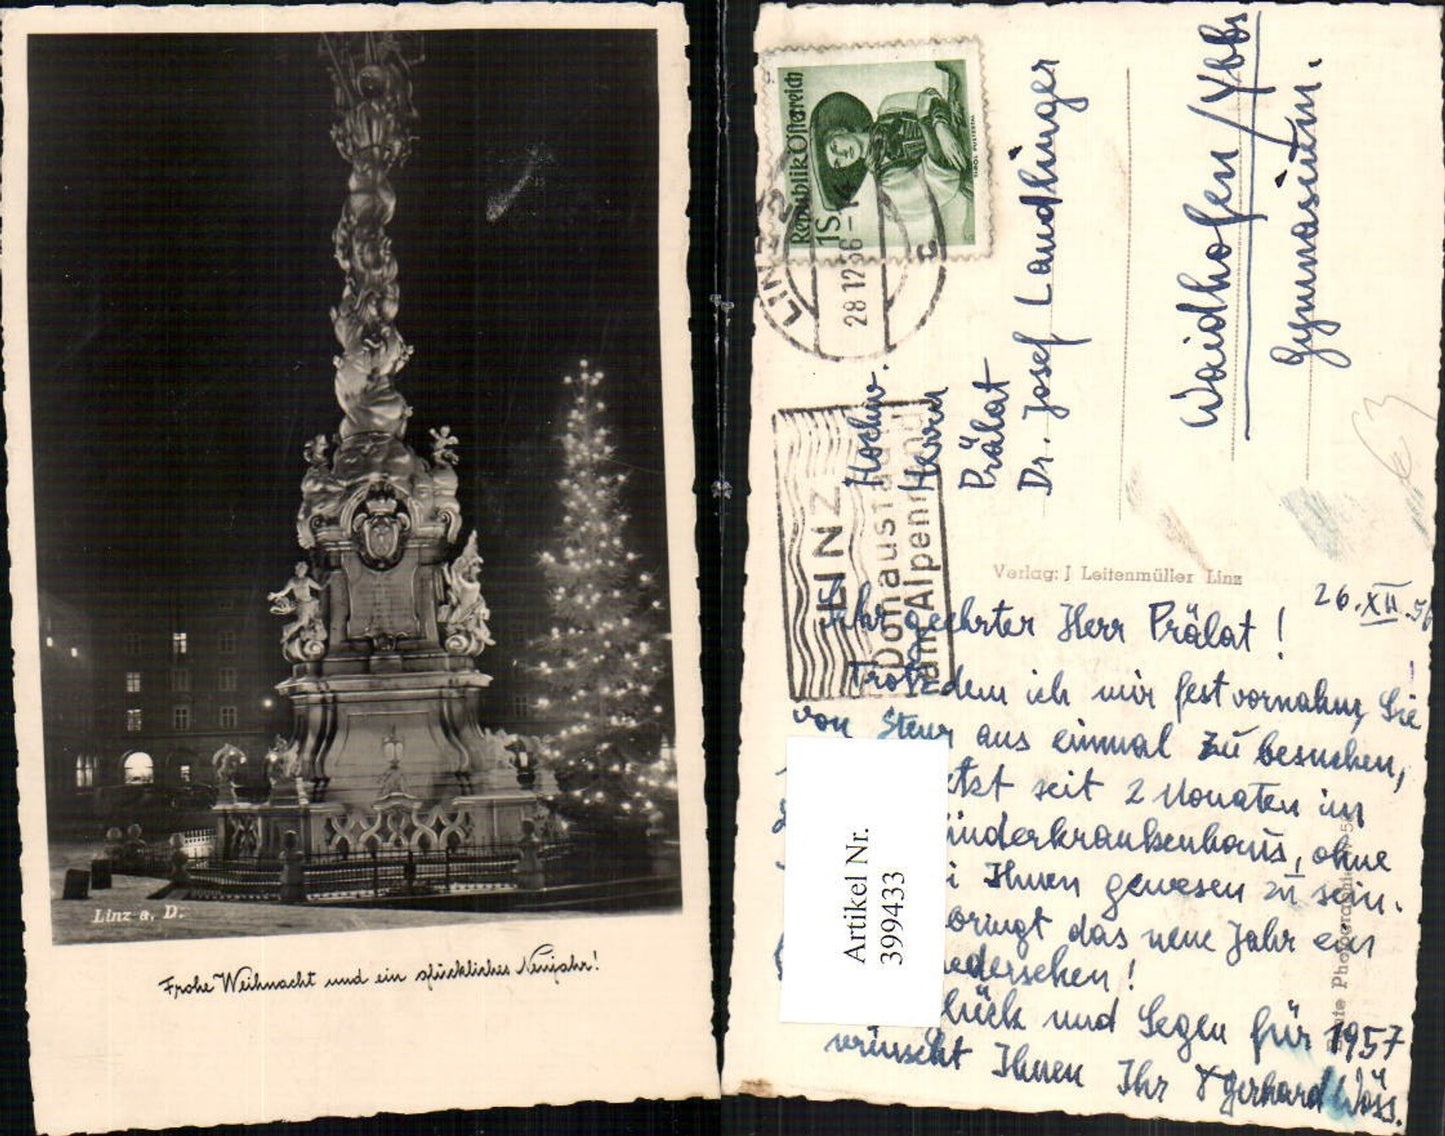 Linz a. D.
Frohe Weihnacht und ein glückliches Neujahr!
Republik Österreich
1S
TIROL PUSTERTAL
LINZ 2
28 12 56
LINZ
Donaustadt
am Alpen
Hochw.
Herrn
Prälat
Dr. Josef Landlinger
Waidhofen / Ybbs
Gymnasium.
Verlag: J Leitenmüller Linz
Echte Photographie
26. XII. 56
Sehr geehrter Herr Prälat!
Trotzdem ich mir fest vornahm, Sie
von Steyr aus einmal zu besuchen,
etzt seit 2 Monaten im
inderkrankenhaus, ohne
i Ihnen gewesen zu sein.
bringt das neue Jahr ein
edersehen!
lück und Segen für 1957
wünscht Ihnen Ihr Gerhard Wöss.
Artikel Nr.
399433